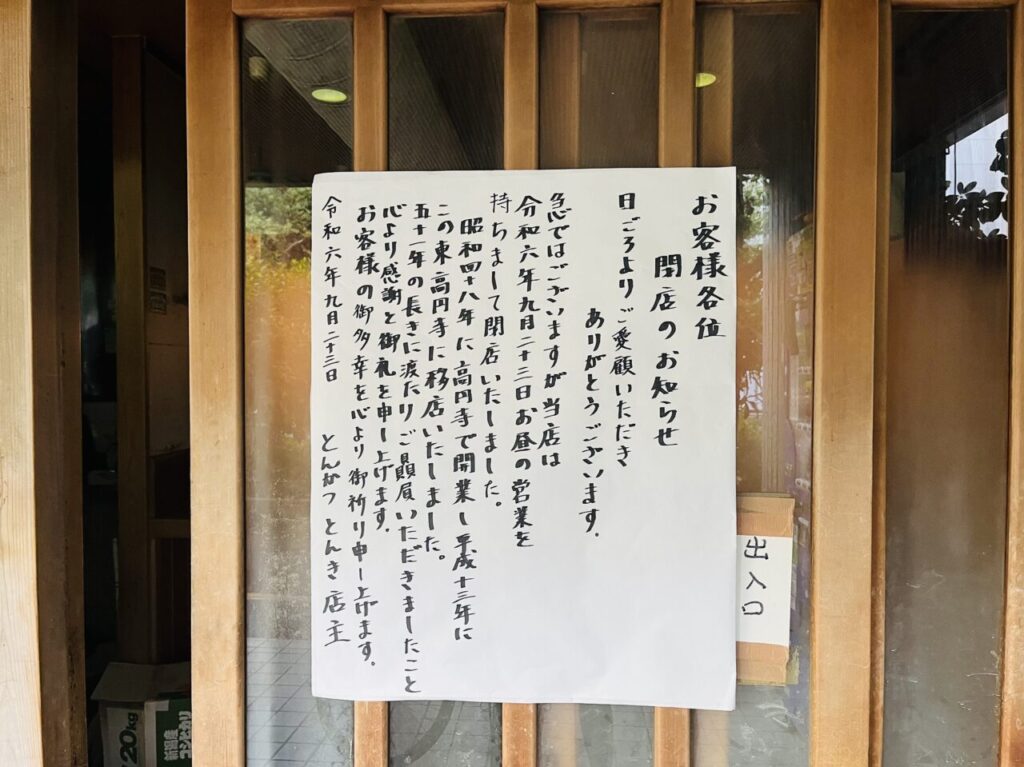 お客様各位
閉店のお知らせ
日ごろよりご愛顧いただき
ありがとうございます.
急ではございますが当店は
令和六年九月二十三日お昼の営業を
持ちまして閉店いたしました。
昭和四十八年に高円寺で開業し平成十三年に
この東高円寺に移店いたしました。
五十一年の長きに渡たりご贔屓いただきましたこと
心より感謝と御礼を申し上げます.
お客様の御多幸を心より御祈り申し上げます.
令和六年九月二十三日 とんかつ とんき店主
出入口
20kg
新潟産
コシヒカリ